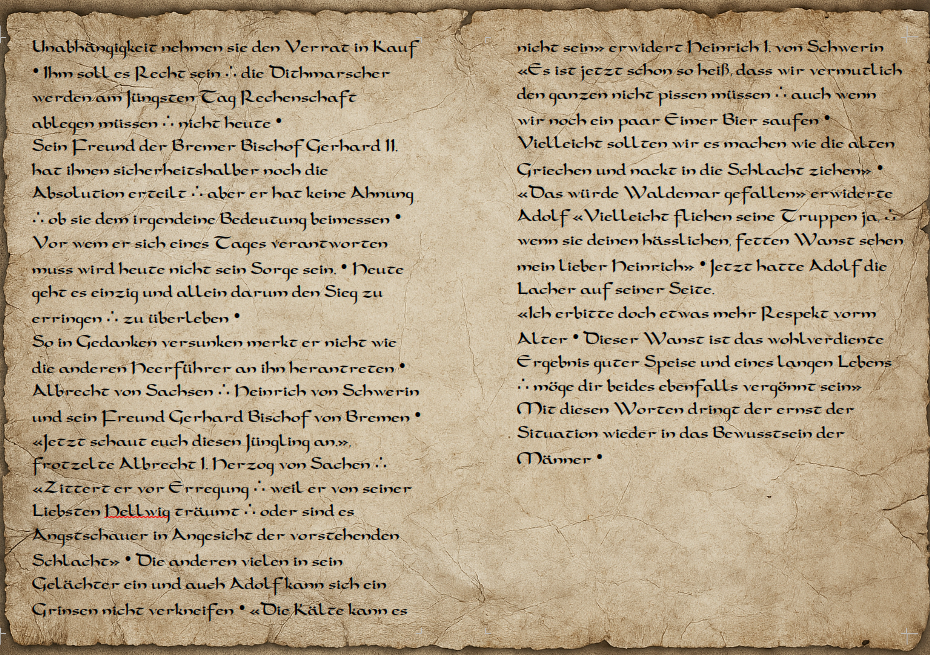 Unabhängigkeit nehmen sie den Verrat in Kauf
• Ihm soll es Recht sein ∴ die Dithmarscher
werden am Jüngsten Tag Rechenschaft
ablegen müssen ∴ nicht heute •
Sein Freund der Bremer Bischof Gerhard II.
hat ihnen sicherheitshalber noch die
Absolution erteilt ∴ aber er hat keine Ahnung
∴ ob sie dem irgendeine Bedeutung beimessen •
Vor wem er sich eines Tages verantworten
muss wird heute nicht sein Sorge sein. • Heute
geht es einzig und allein darum den Sieg zu
erringen ∴ zu überleben •
So in Gedanken versunken merkt er nicht wie
die anderen Heerführer an ihn herantreten •
Albrecht von Sachsen ∴ Heinrich von Schwerin
und sein Freund Gerhard Bischof von Bremen •
«Jetzt schaut euch diesen Jüngling an.»,
frotzelte Albrecht I. Herzog von Sachen ∴
«Zittert er vor Erregung ∴ weil er von seiner
Liebsten Hellwig träumt ∴ oder sind es
Angstschauer in Angesicht der vorstehenden
Schlacht» • Die anderen vielen in sein
Gelächter ein und auch Adolf kann sich ein
Grinsen nicht verkneifen • «Die Kälte kann es
nicht sein» erwidert Heinrich I. von Schwerin
«Es ist jetzt schon so heiß, dass wir vermutlich
den ganzen nicht pissen müssen ∴ auch wenn
wir noch ein paar Eimer Bier saufen •
Vielleicht sollten wir es machen wie die alten
Griechen und nackt in die Schlacht ziehen» •
«Das würde Waldemar gefallen» erwiderte
Adolf «Vielleicht fliehen seine Truppen ja ∴
wenn sie deinen hässlichen, fetten Wanst sehen
mein lieber Heinrich» • Jetzt hatte Adolf die
Lacher auf seiner Seite.
«Ich erbitte doch etwas mehr Respekt vorm
Alter • Dieser Wanst ist das wohlverdiente
Ergebnis guter Speise und eines langen Lebens
∴ möge dir beides ebenfalls vergönnt sein»
Mit diesen Worten dringt der ernst der
Situation wieder in das Bewusstsein der
Männer •